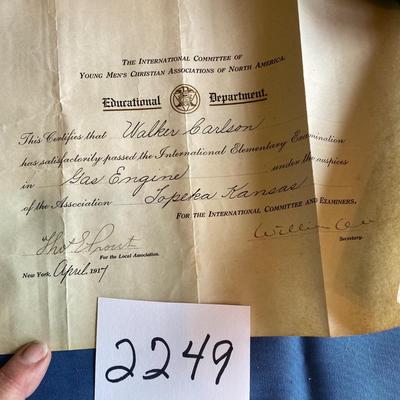 The International Committee of
Young Men's Christian Associations of North America.
Educational Department.
This Certifies that Walker Carlson
has satisfactorily passed the International Elementary Examination
in Gas Engine under the auspices
of the Association Topeka Kansas
For the International Committee and Examiners,
For the Local Association.
Secretary.
New York, April 1917
2249